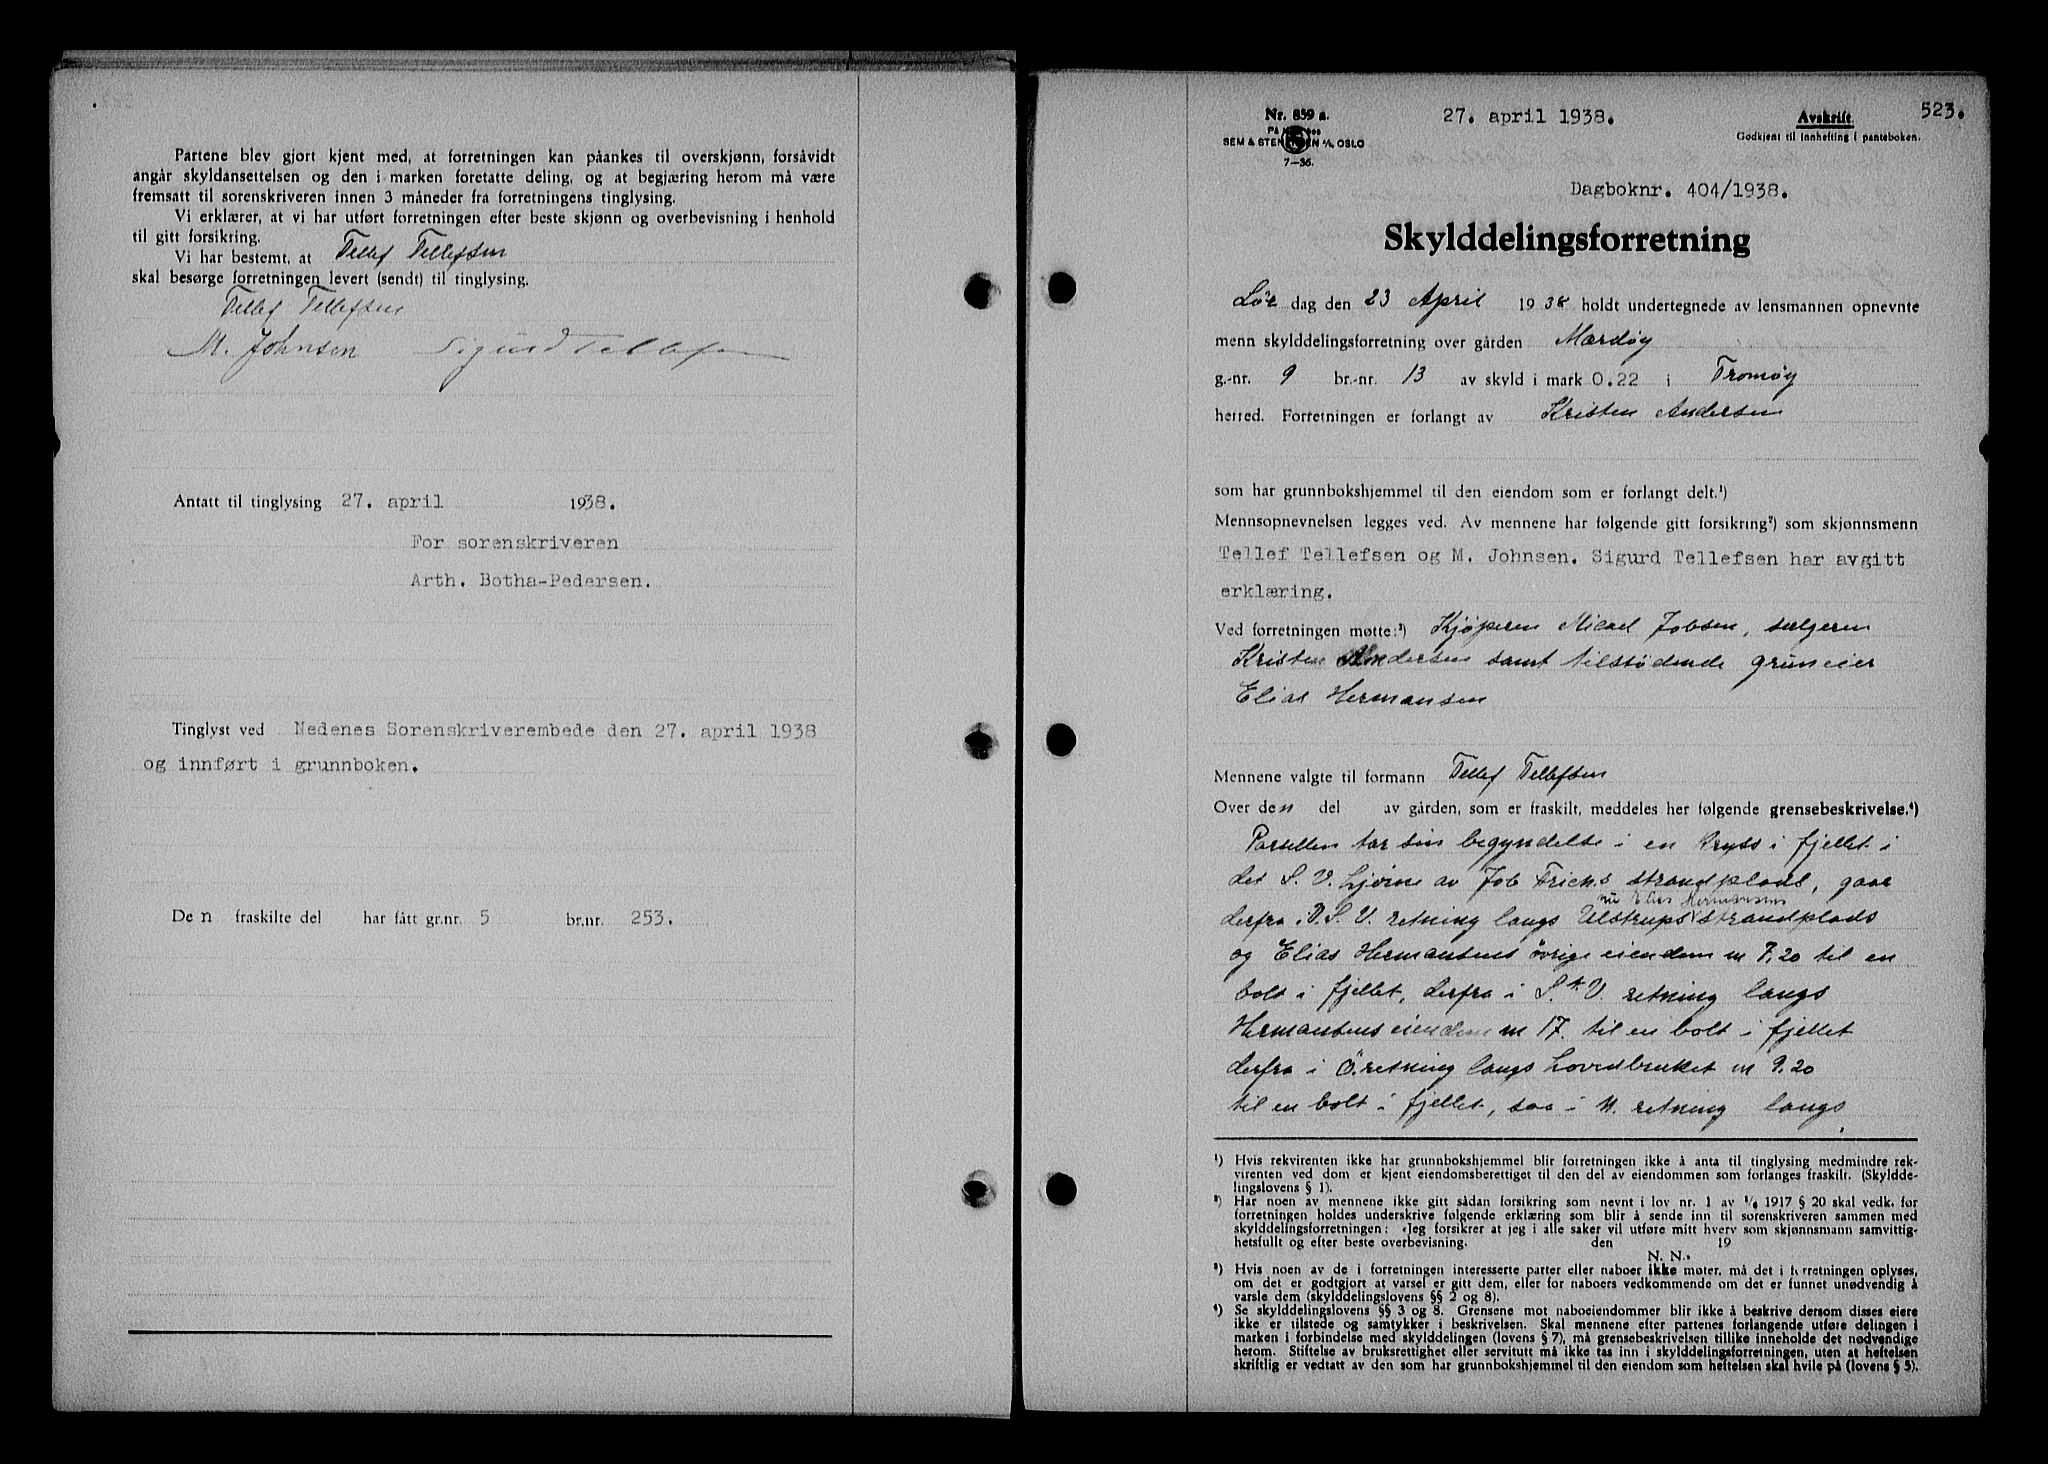 Partene blev gjort kjent med, at forretningen kan påankes til overskjønn, forsåvidt
angår skyldansettelsen og den i marken foretatte deling, og at begjæring herom må være
fremsatt til sorenskriveren innen 3 måneder fra forretningens tinglysing.
Vi erklærer, at vi har utført forretningen efter beste skjønn og overbevisning i henhold
til gitt forsikring.
Vi har bestemt, at Tellef Tellefsen
skal besørge forretningen levert (sendt) til tinglysing.
Tellef Tellefsen
M. Johnsen Sigurd Tellefsen
Antatt til tinglysing 27. april 1938.
For sorenskriveren
Arth. Botha-Pedersen.
Tinglyst ved Nedenes Sorenskriverembede den 27. april 1938
og innført i grunnboken.
Den fraskilte del har fått gr.nr. 5 br.nr. 253.
Nr. 859 a.
SEM & STENERSEN A/S, OSLO
7—36.
27. april 1938.
Avskrift.
Godkjent til innhefting i panteboken.
523.
Dagboknr. 404/1938.
Skylddelingsforretning
Lør dag den 23 April 1938 holdt undertegnede av lensmannen opnevnte
menn skylddelingsforretning over gården Mærdøy
g.-nr. 9 br.-nr. 13 av skyld i mark 0.22 i Tromøy
herred. Forretningen er forlangt av Kristen Andersen
som har grunnbokshjemmel til den eiendom som er forlangt delt.¹)
Mennsopnevnelsen legges ved. Av mennene har følgende gitt forsikring²) som skjønnsmenn
Tellef Tellefsen og M. Johnsen. Sigurd Tellefsen har avgitt
erklæring.
Ved forretningen møtte:³) Kjøperen Micael Jobsen, sælgeren
Kristen Andersen samt tilstødende gruneier
Elias Hermansen
Mennene valgte til formann Tellef Tellefsen
Over den del av gården, som er fraskilt, meddeles her følgende grensebeskrivelse.⁴)
Parsellen tar sin begyndelse i en kryss i fjellet i
det S. V. hjørne av Job Fricks strandplads, gaar
nu Elias Hermansens
derfra i V. S. V. retning langs Ulstrups strandplads
og Elias Hermansens øvrige eiendom m 7,20 til en
bolt i fjellet, derfra i S. t. V. retning langs
Hermansens eiendom m 17. til en bolt i fjellet
derfra i Ö. retning langs hovedbruket m 9.20
til en bolt i fjellet, saa i N. retning langs
¹) Hvis rekvirenten ikke har grunnbokshjemmel blir forretningen ikke å anta til tinglysing medmindre rek-
virenten ved dom er kjent eiendomsberettiget til den del av eiendommen som forlanges fraskilt. (Skyldde-
lingslovens § 1).
²) Har noen av mennene ikke gitt sådan forsikring som nevnt i lov nr. 1 av 1/6 1917 § 20 skal vedk. før
forretningen holdes underskrive følgende erklæring som blir å sende inn til sorenskriveren sammen med
skylddelingsforretningen: «Jeg forsikrer at jeg i alle saker vil utføre mitt hverv som skjønnsmann samvittig-
hetsfullt og efter beste overbevisning. den 19
N. N.»
³) Hvis noen av de i forretningen interesserte parter eller naboer ikke møter, må det i forretningen oplyses,
om det er godtgjort at varsel er gitt dem, eller for naboers vedkommende om det er funnet unødvendig å
varsle dem (skylddelingslovens §§ 2 og 8).
⁴) Se skylddelingslovens §§ 3 og 8. Grensene mot naboeiendommer blir ikke å beskrive dersom disses eiere
ikke er tilstede og samtykker i beskrivelsen. Skal mennene efter partenes forlangende utføre delingen i
marken i forbindelse med skylddelingen (lovens § 7), må grensebeskrivelsen tillike inneholde det nødvendige
herom. Stiftelse av bruksrettighet eller servitutt må ikke tas inn i skylddelingsforretningen, uten at heftelsen
skriftlig er vedtatt av den som har grunnbokshjemmel til den eiendom som heftelsen skal hvile på (lovens § 5).